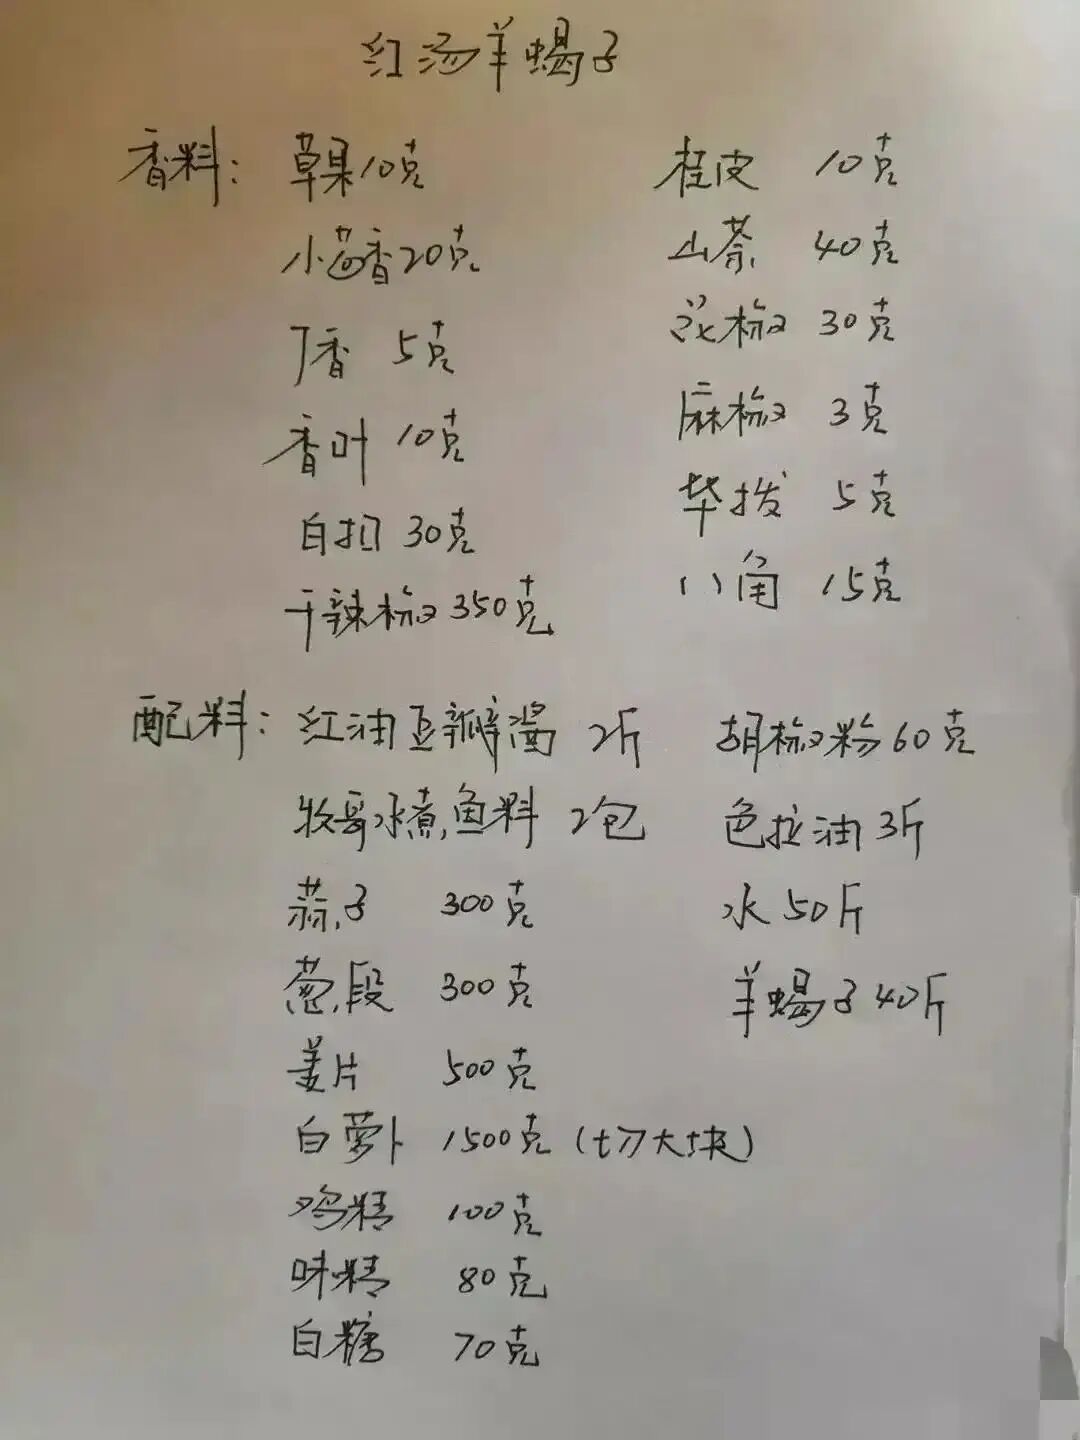 红汤羊蝎子
香料: 草果10克 桂皮 10克
小茴香20克 山茶 40克
丁香 5克 花椒 30克
香叶 10克 麻椒 3克
白扣 30克 毕拨 5克
干辣椒 350克 八角 15克
配料: 红油豆瓣酱 2斤 胡椒粉60克
牧哥水煮鱼料 2包 色拉油3斤
蒜子 300克 水50斤
葱段 300克 羊蝎子40斤
姜片 500克
白萝卜 1500克(切大块)
鸡精 100克
味精 80克
白糖 70克